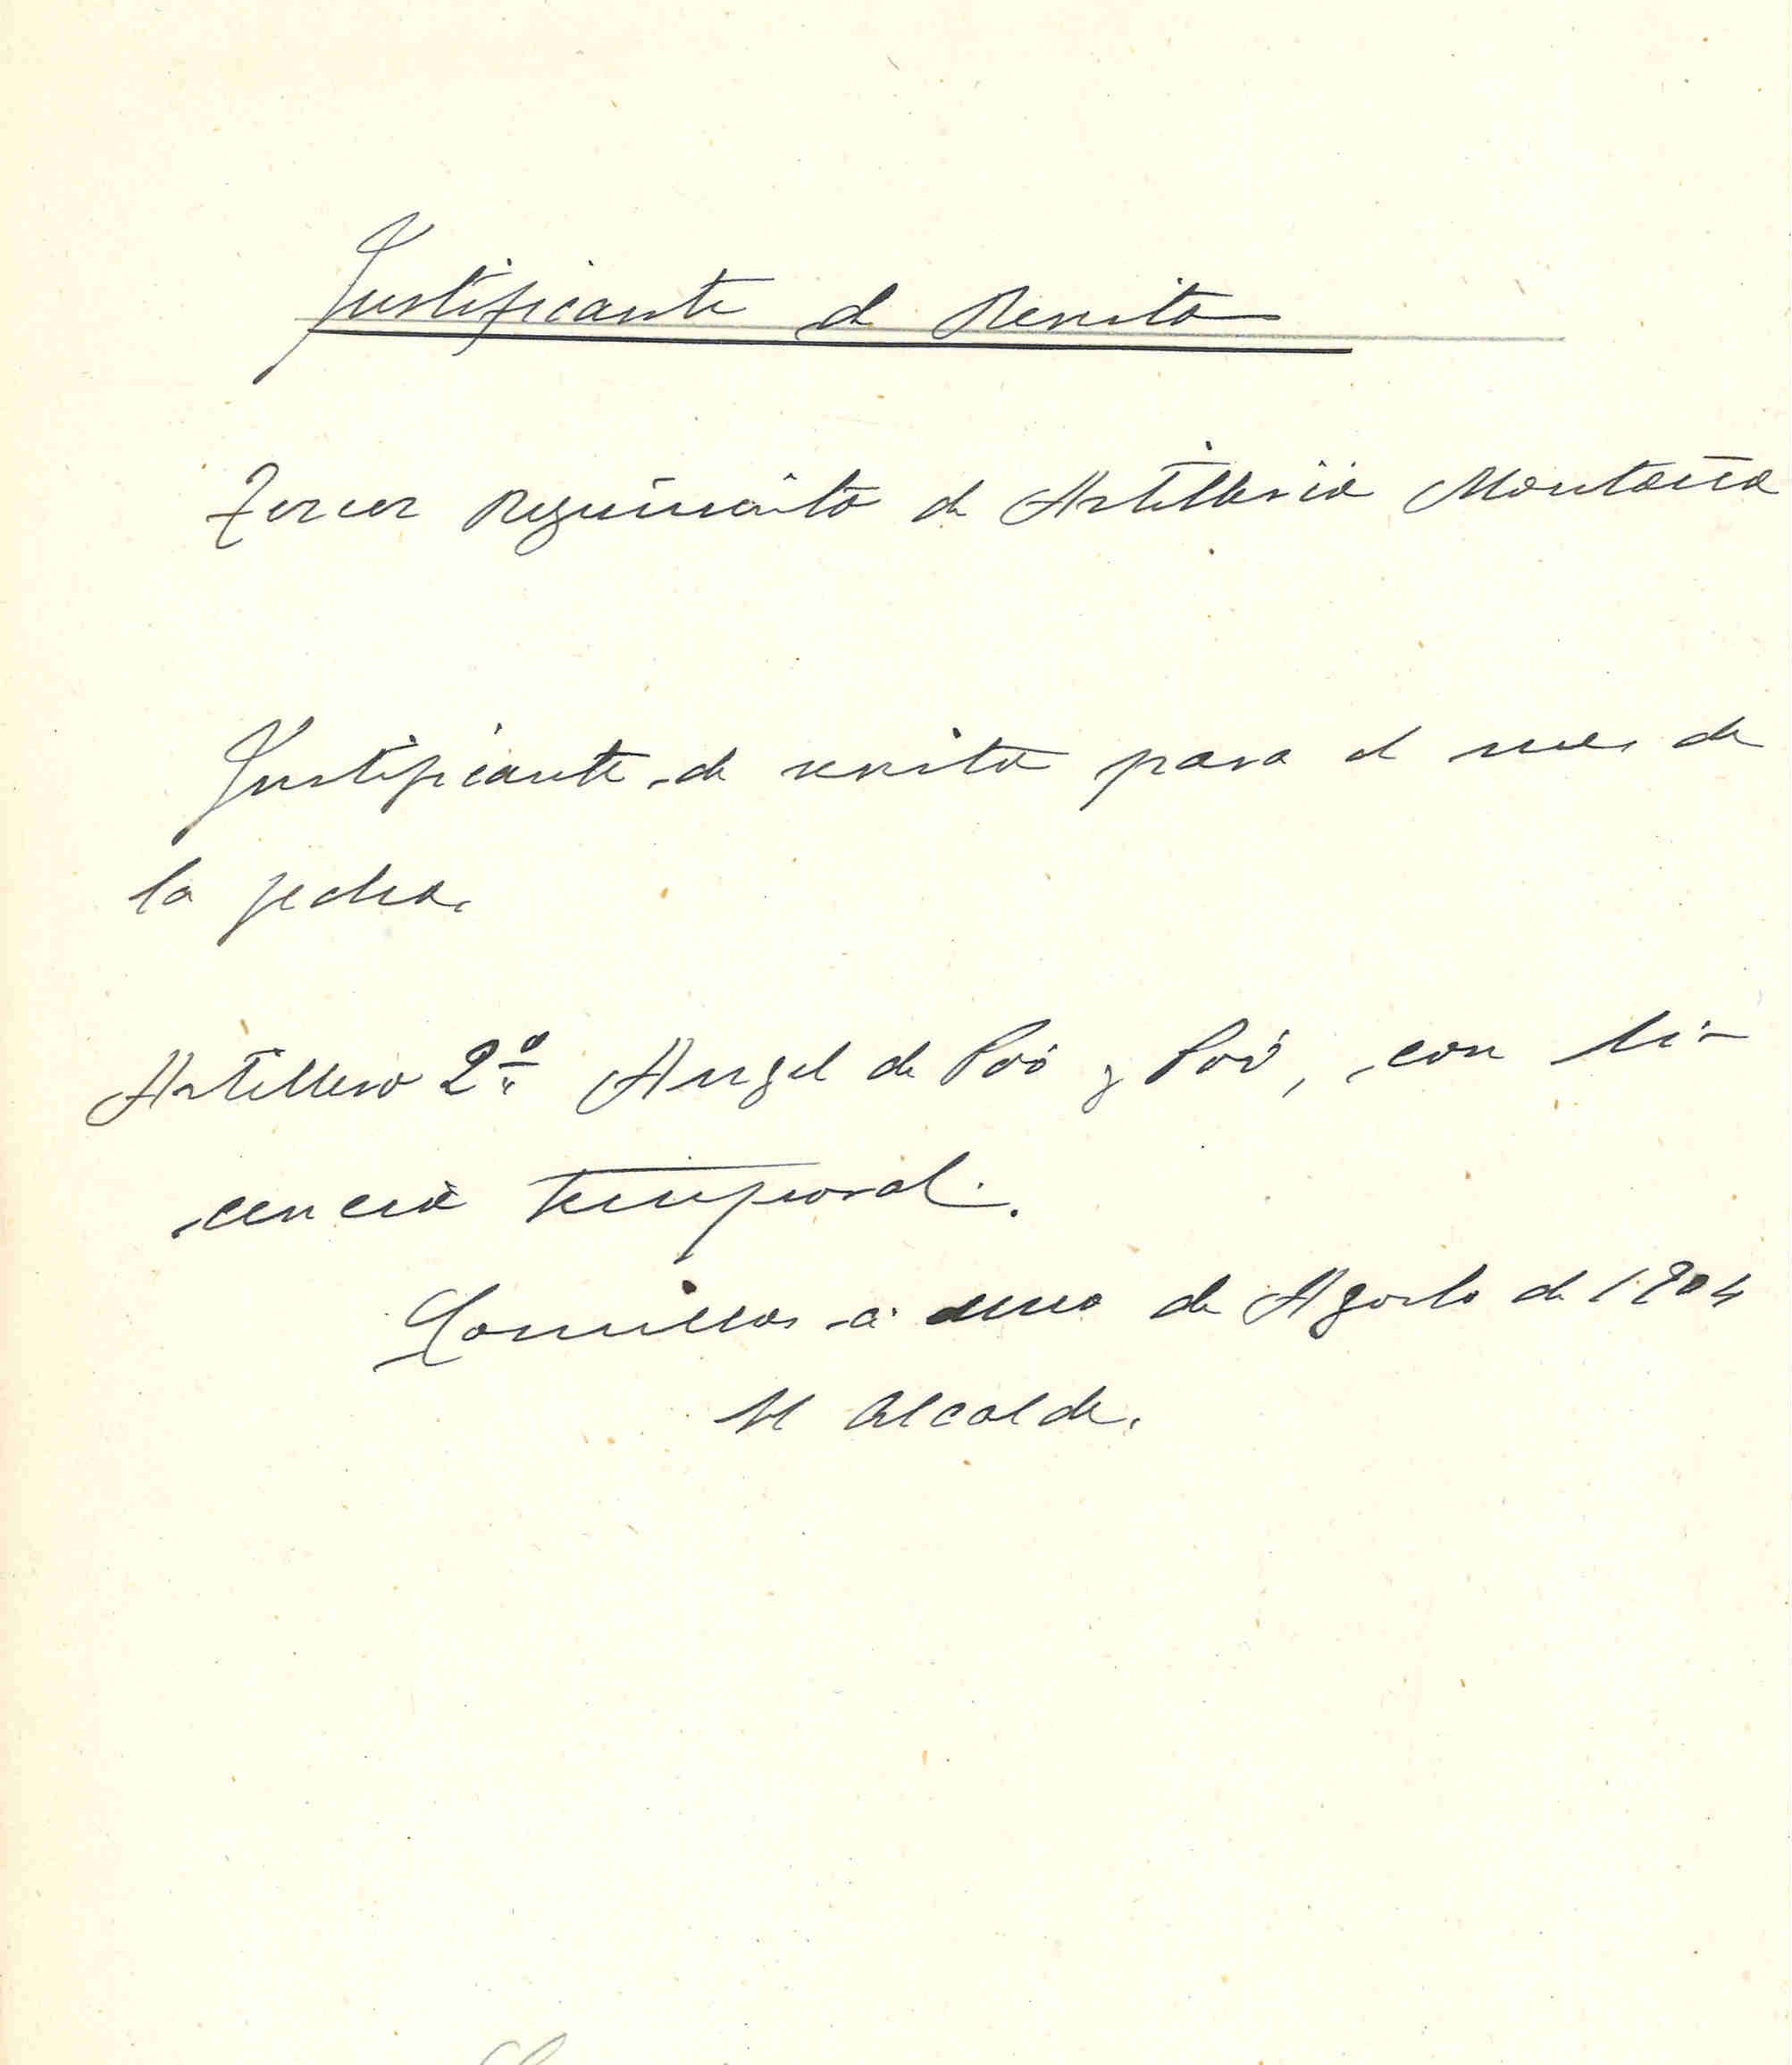 Justificante de Revista
Tercer Regimiento de Artilleria Montaña
Justificante de revista para el mes de
la fecha.
Artillero 2º Angel de Poó y Poó, con li-
cencia temporal.
Comillas á uno de Agosto de 1904
El Alcalde.